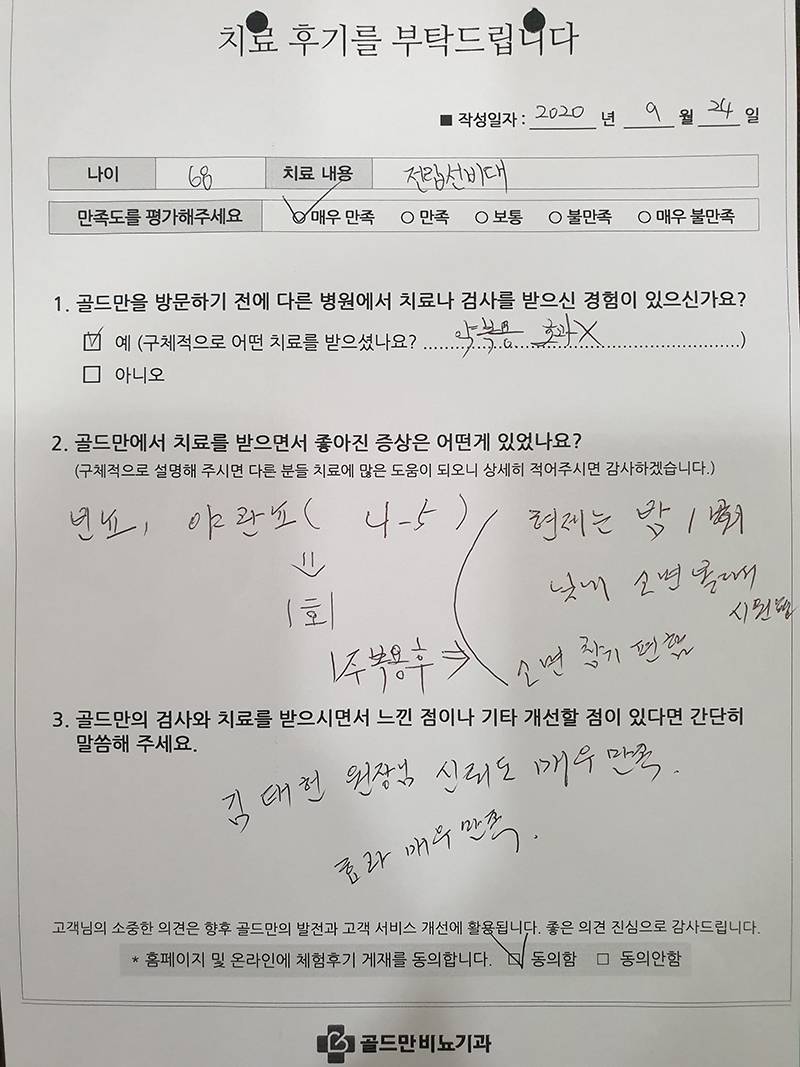 치료 후기를 부탁드립니다
■ 작성일자 : 2020 년 9 월 24 일
나이 68 치료 내용 전립선비대
만족도를 평가해주세요 ○ 매우 만족 ○ 만족 ○ 보통 ○ 불만족 ○ 매우 불만족
1. 골드만을 방문하기 전에 다른 병원에서 치료나 검사를 받으신 경험이 있으신가요?
☑ 예 (구체적으로 어떤 치료를 받으셨나요? 약복용 효과X)
□ 아니오
2. 골드만에서 치료를 받으면서 좋아진 증상은 어떤게 있었나요?
(구체적으로 설명해 주시면 다른 분들 치료에 많은 도움이 되오니 상세히 적어주시면 감사하겠습니다.)
빈뇨, 야간뇨 ( 4-5 ) 현제는 밤 1
⇓ 낮에 소변
1회
1주 복용후 ⇒ 소변 참기 편함
3. 골드만의 검사와 치료를 받으시면서 느낀 점이나 기타 개선할 점이 있다면 간단히
말씀해 주세요.
김태헌 원장님 신뢰도 매우 만족.
효과 매우 만족.
고객님의 소중한 의견은 향후 골드만의 발전과 고객 서비스 개선에 활용됩니다. 좋은 의견 진심으로 감사드립니다.
* 홈페이지 및 온라인에 체험후기 게재를 동의합니다. ☑ 동의함 □ 동의안함
골드만비뇨기과